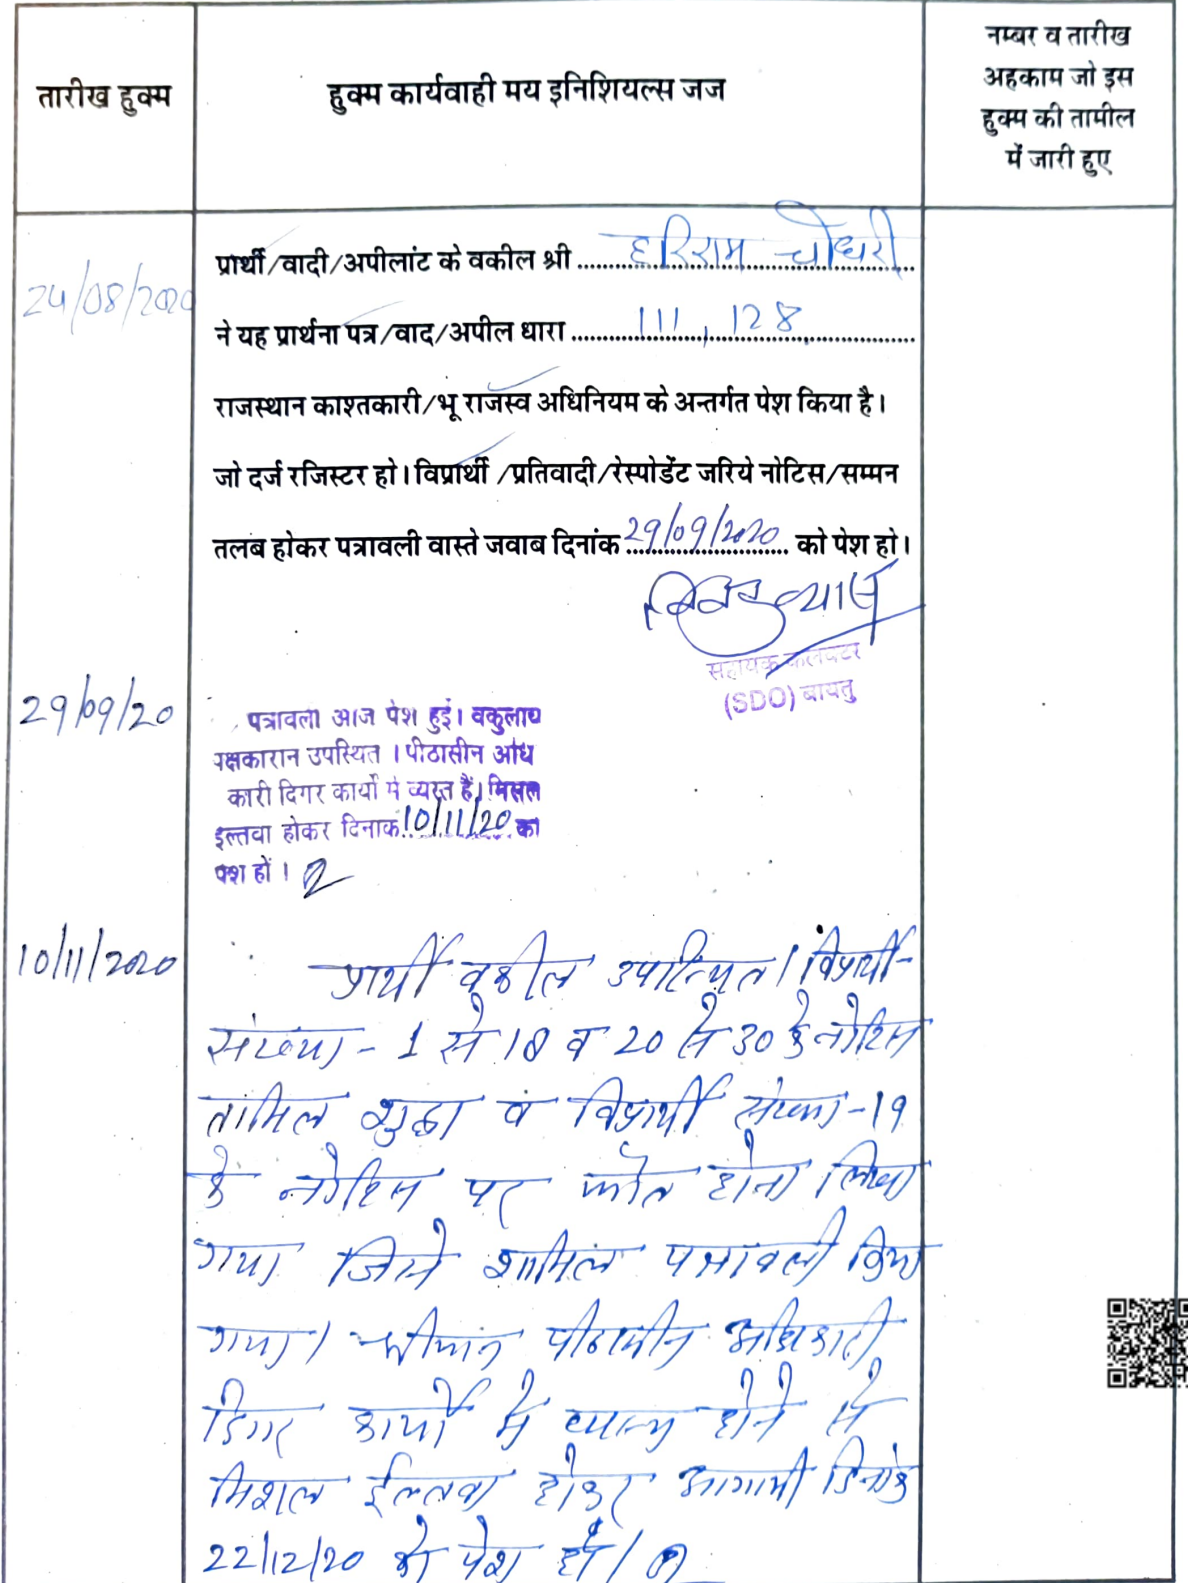 तारीख हुक्म
हुक्म कार्यवाही मय इनिशियल्स जज
नम्बर व तारीख
अहकाम जो इस
हुक्म की तामील
में जारी हुए
24/08/2020
प्रार्थी/वादी/अपीलांट के वकील श्री हरिराम चौधरी
ने यह प्रार्थना पत्र/वाद/अपील धारा 111, 128
राजस्थान काश्तकारी/भू राजस्व अधिनियम के अन्तर्गत पेश किया है।
जो दर्ज रजिस्टर हो। विप्रार्थी /प्रतिवादी/रेस्पोडेंट जरिये नोटिस/सम्मन
तलब होकर पत्रावली वास्ते जवाब दिनांक 29/09/2020 को पेश हो।
सहायक कलक्टर
(SDO) बायतु
29/09/20
पत्रावली आज पेश हुई। वकुलाय
पक्षकारान उपस्थित । पीठासीन अधि
कारी दिगर कार्यो में व्यस्त हैं। मिसल
इल्तवा होकर दिनाक 10/11/20 को
पेश हों ।
10/11/2020
प्रार्थी वकील उपस्थित। विप्रार्थी-
संख्या - 1 से 18 व 20 से 30 के नोटिस
तामिल शुदा व विप्रार्थी संख्या -19
के नोटिस पर फौत होना लिखा
गया जिसे शामिल पत्रावली किया
गया। श्रीमान पीठासीन अधिकारी
डिगर कार्यो में व्यस्त होने से
मिशल ईल्तवा होकर आगामी दिनांक
22/12/20 को पेश हो।